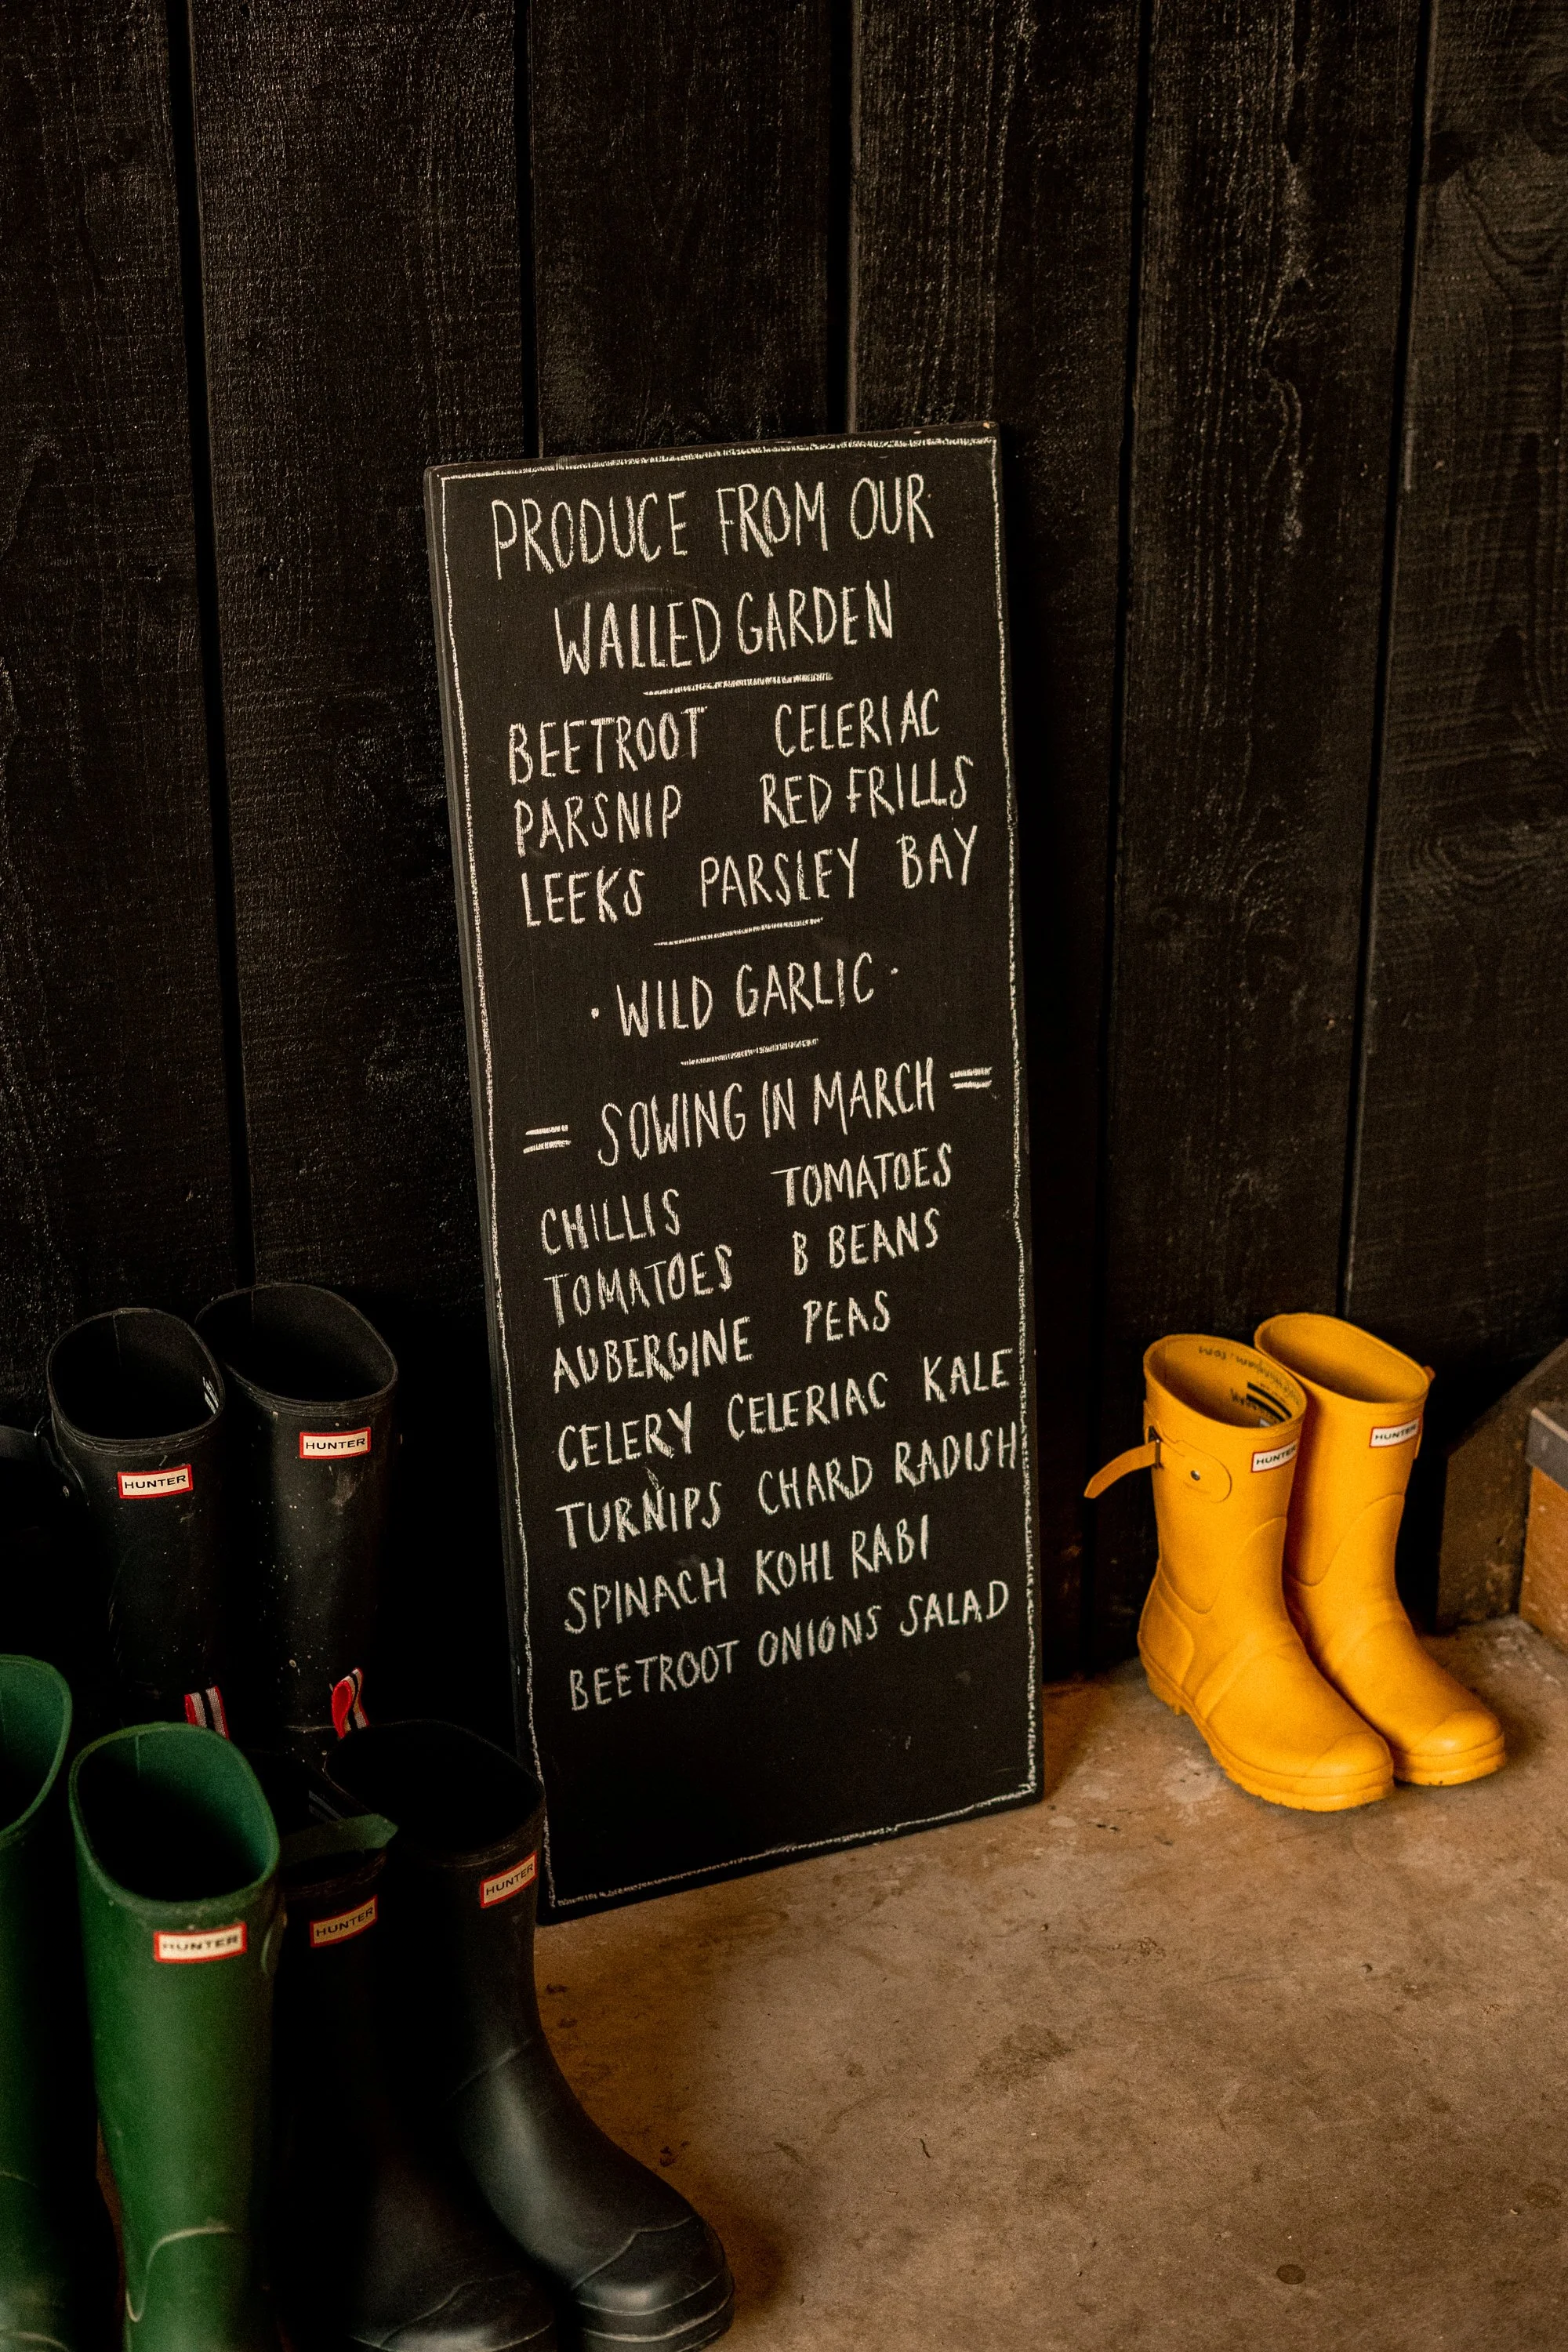 PRODUCE FROM OUR
WALLED GARDEN
BEETROOT CELERIAC
PARSNIP RED FRILLS
LEEKS PARSLEY BAY
· WILD GARLIC ·
= SOWING IN MARCH =
CHILLIS TOMATOES
TOMATOES B BEANS
AUBERGINE PEAS
CELERY CELERIAC KALE
TURNIPS CHARD RADISH
SPINACH KOHL RABI
BEETROOT ONIONS SALAD
HUNTER
HUNTER
HUNTER
HUNTER
HUNTER
HUNTER
HUNTER